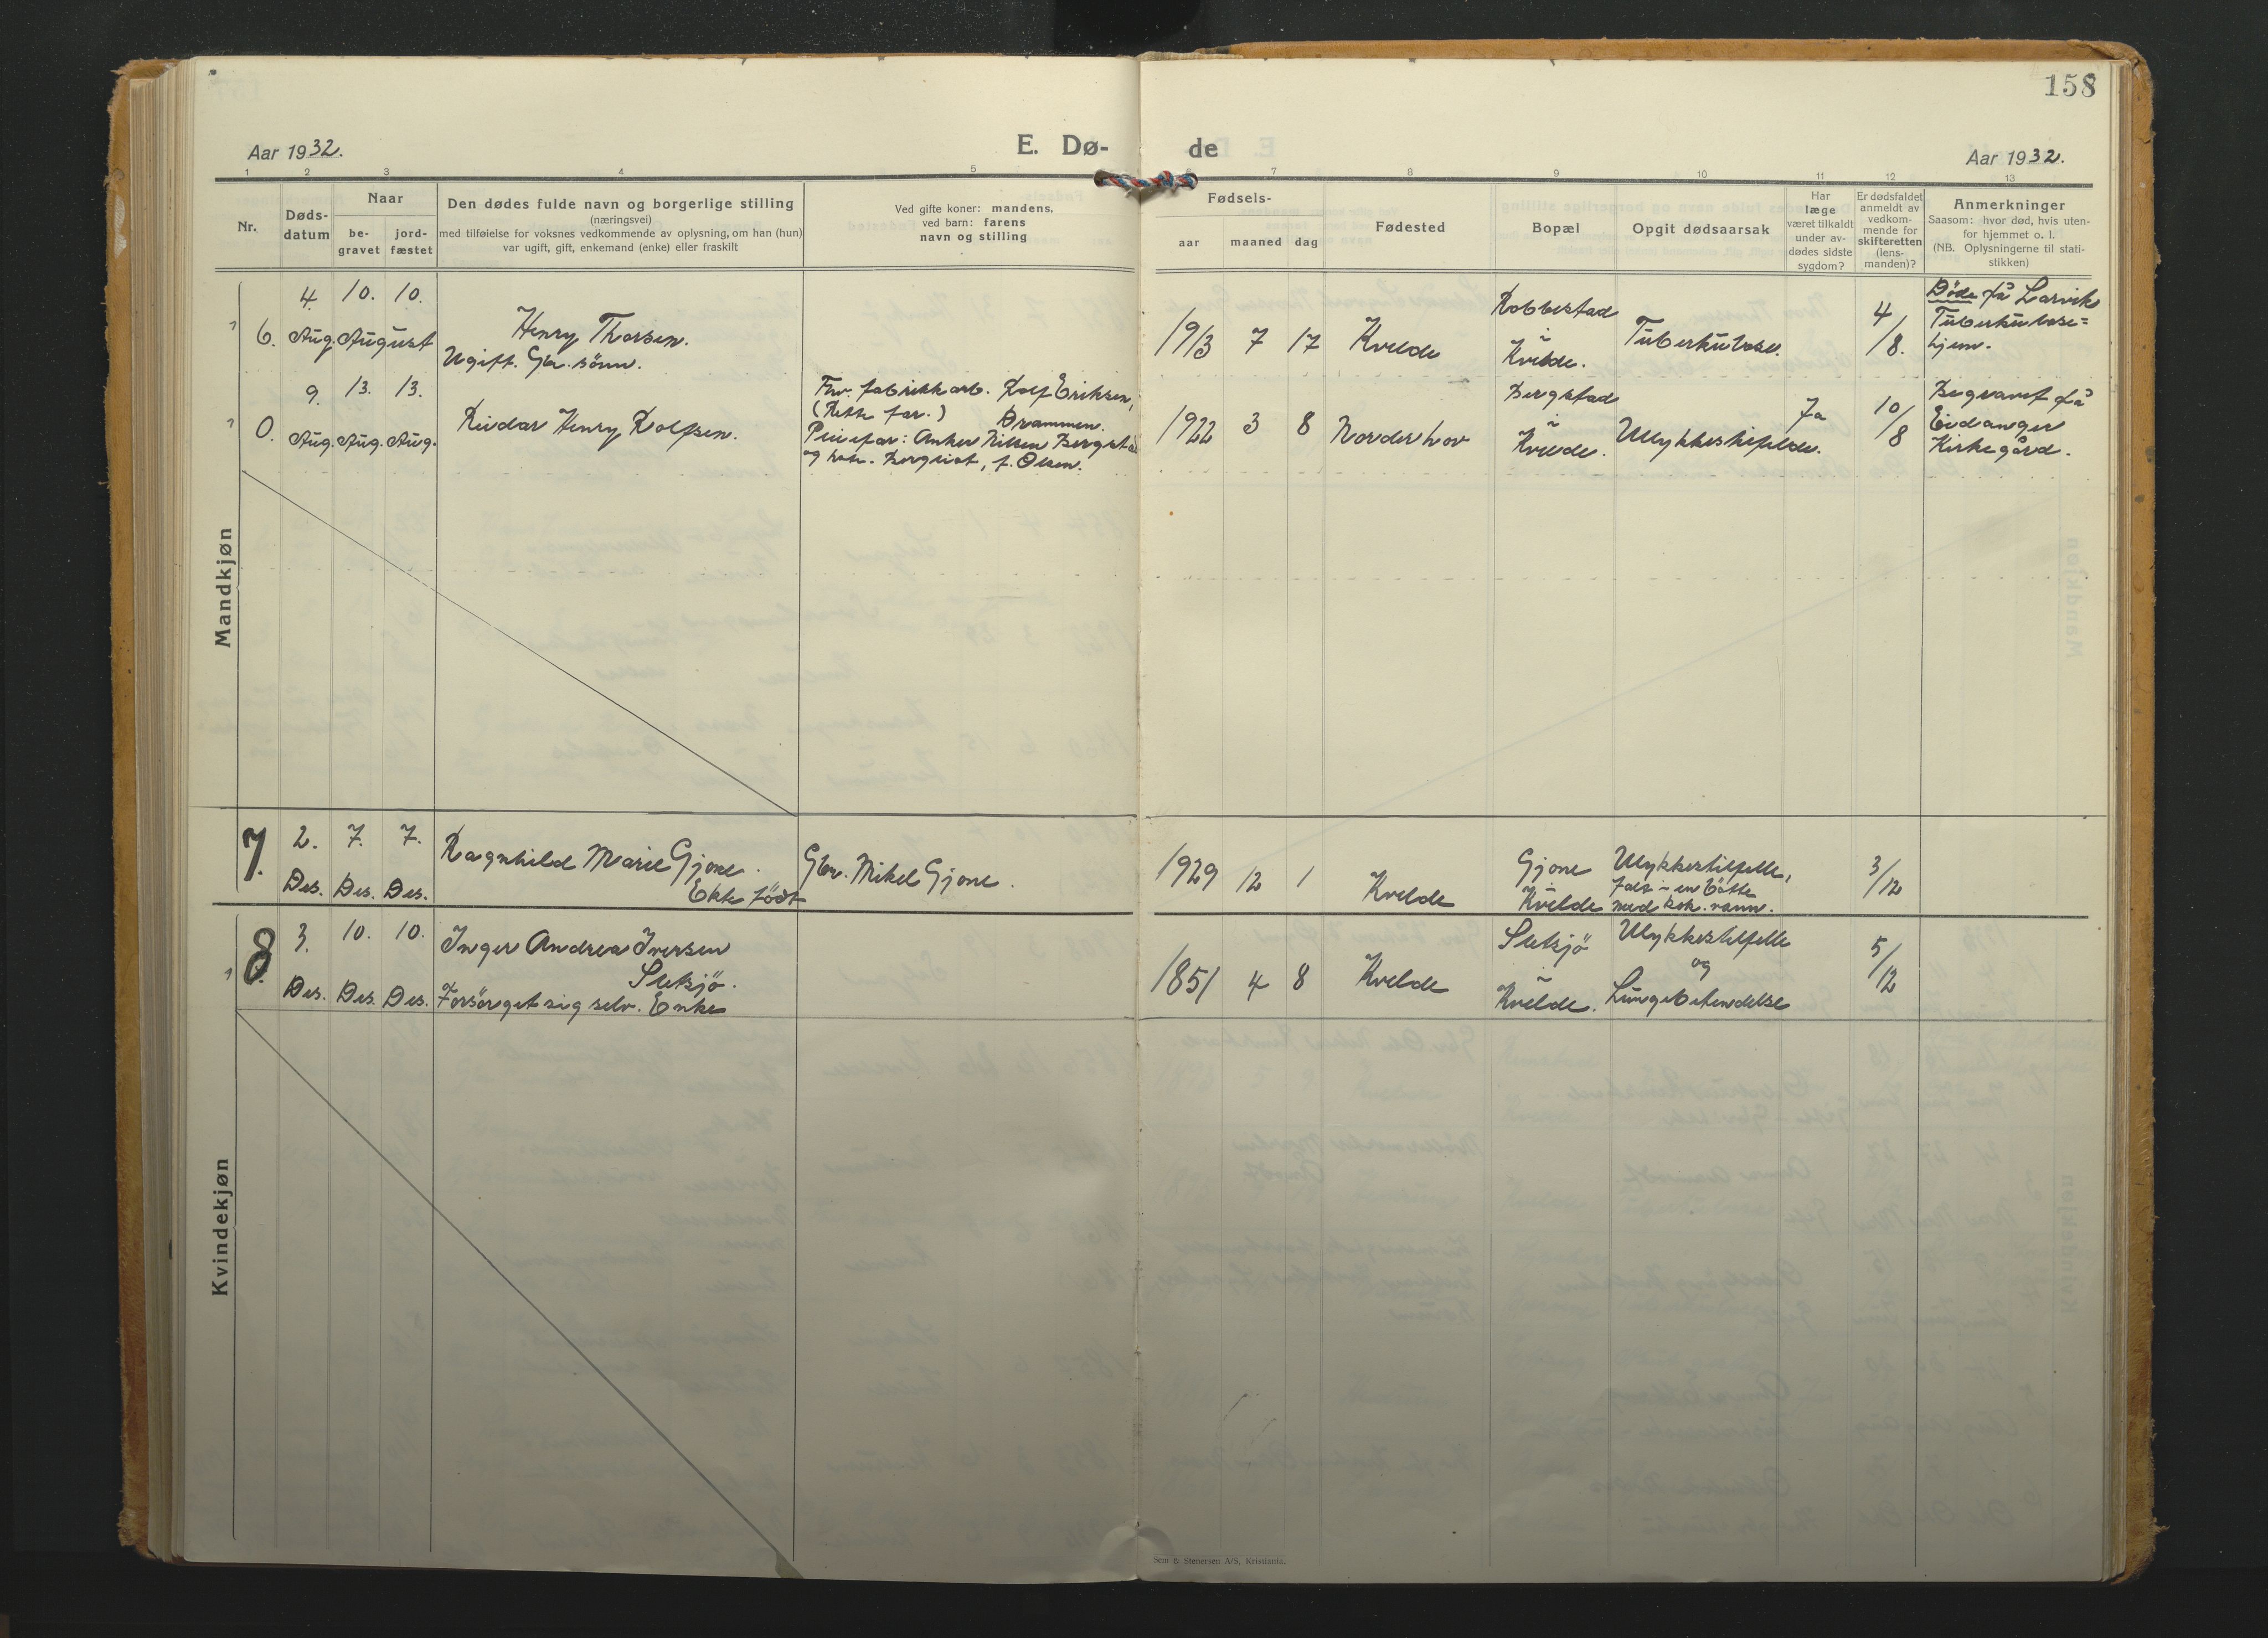 158
Aar 1932.
E. Dø-
de
Aar 1932.
1 2 3 4 5 7 8 9 10 11 12 13
Nr.
Døds-
datum
Naar
be-
gravet
jord-
fæstet
Den dødes fulde navn og borgerlige stilling
(næringsvei)
med tilføielse for voksnes vedkommende av oplysning, om han (hun)
var ugift, gift, enkemand (enke) eller fraskilt
Ved gifte koner: mandens,
ved barn: farens
navn og stilling
Fødsels-
aar
maaned
dag
Fødested
Bopæl
Opgit dødsaarsak
Har
læge
været tilkaldt
under av-
dødes sidste
sygdom?
Er dødsfaldet
anmeldt av
vedkom-
mende for
skifteretten
(lens-
manden)?
Anmerkninger
Saasom: hvor død, hvis uten-
for hjemmet o. l.
(NB. Oplysningerne til stati-
stikken)
Mandkjøn
6.
4. 10. 10.
Aug. August
Henry Thorsen.
Ugift. Gbr. sønn.
1913 7 17
Kvelde
Robbestad
i
Kvelde.
Tuberkulose.
4/8.
Døde på Larvik
Tuberkulose=
hjem.
0.
9. 13. 13.
Aug. Aug. Aug.
Reidar Henry Rolfsen.
Fhv. fabrikkarb. Rolf Eriksen,
(Rette far.) Drammen.
Pleiefar: Anker Nilsen Bergstad
og hstr. Bergliot, f. Olsen.
1922 3 8
Norderhov
Bergstad
i
Kvelde.
Ulykkestifelde.
Ja
10/8
Begravet på
Eidanger
Kirkegård.
Kvindekjøn
7.
2. 7. 7.
Des. Des. Des.
Ragnhild Marie Gjone.
Ekte født
Gbr. Mikel Gjone.
1929 12 1
Kvelde
Gjone
i
Kvelde
Ulykkestilfelle,
falt i en bøtte
med kok. vann.
3/12
8.
3. 10. 10.
Des. Des. Des.
Inger Andrea Iversen
Sletsjø.
Forsørget sig selv. Enke
1851 4 8
Kvelde
Sletsjø
i
Kvelde.
Ulykkestilfelle
og
Lungebetendelse
5/12
Sem & Stenersen A/S, Kristiania.